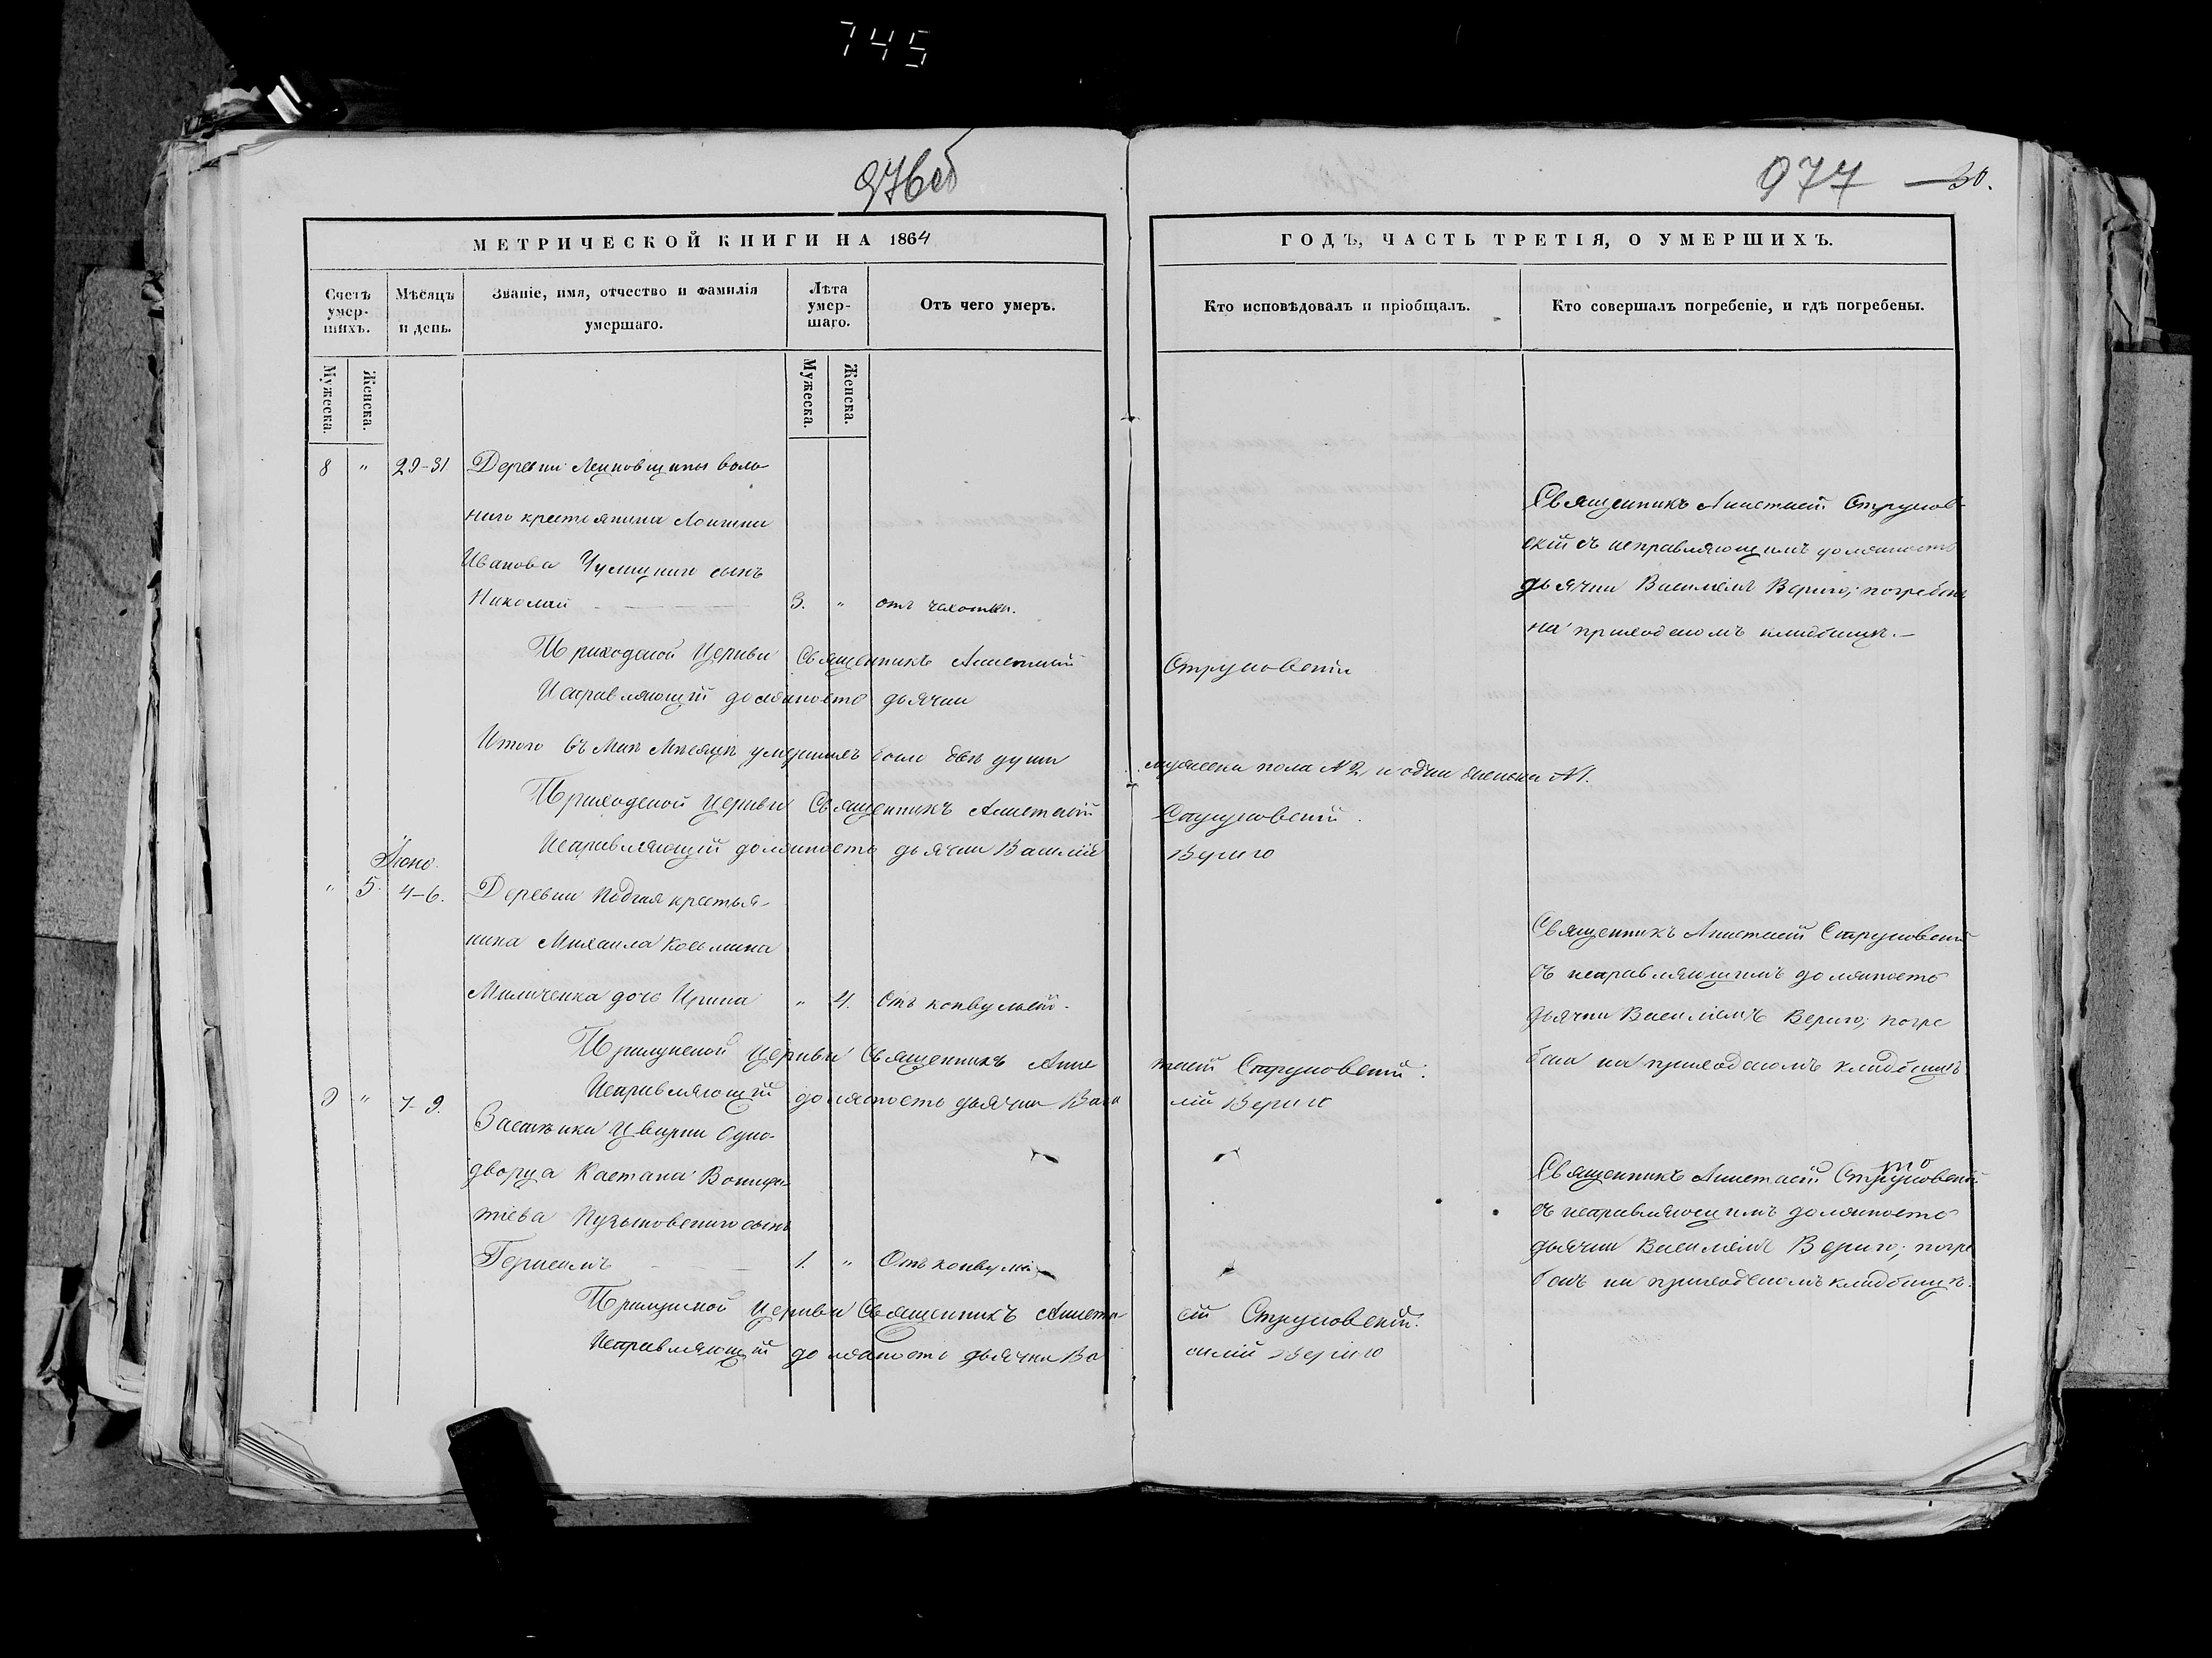 745
976об
977 30.
МЕТРИЧЕСКОЙ КНИГИ НА 1864
ГОДЪ, ЧАСТЬ ТРЕТІЯ, О УМЕРШИХЪ.
Счетъ умер-шихъ.
Мѣсяцъ и день.
Званіе, имя, отчество и фамилія умершаго.
Лѣта умер-шаго.
Отъ чего умеръ.
Кто исповѣдовалъ и пріобщалъ.
Кто совершалъ погребеніе, и гдѣ погребены.
Мужеска.
Женска.
Мужеска.
Женска.
8 " 29-31 Деревни воль-
наго крестьянина
Иванова сынъ
Николай 3. " отъ чахотки.
Священникъ Анастасій Струковъ-
скій съ исправляющимъ должность
дьячка Василіемъ Вериго; погребенъ
на приходскомъ кладбищѣ.
Приходской Церкви Священникъ Анастасій Струковскій
Исправляющій должность дьячка
Итого въ Маѣ Мѣсяцѣ умершихъ было двѣ души мужеска пола № 2, и одна женска № 1.
Приходской Церкви Священникъ Анастасій Струковскій.
Исправляющій должность дьячка Василій Вериго
Іюнь.
" 5. 4-6. Деревни крестья-
нина Михаила Козьмина
дочь Ирина " 4. Отъ конвульсій.
Священникъ Анастасій Струковскій
съ исправляющимъ должность
дьячка Василіемъ Вериго; погре
бена на приходскомъ кладбищѣ
Церкви Священникъ Анас тасій Струковскій.
Исправляющій должность дьячка Васи лій Вериго
9 " 7-9. Застѣнка Одно-
дворца Каетана Вонифа
тіева сынъ
1. " Отъ конвульсій
Священникъ Анастасій Струковскій
съ исправляющимъ должность
дьячка Василіемъ Вериго; погре
бенъ на приходскомъ кладбищѣ.
Церкви Священникъ Анаста сій Струковскій.
Исправляющій должность дьячка Ва силій Вериго